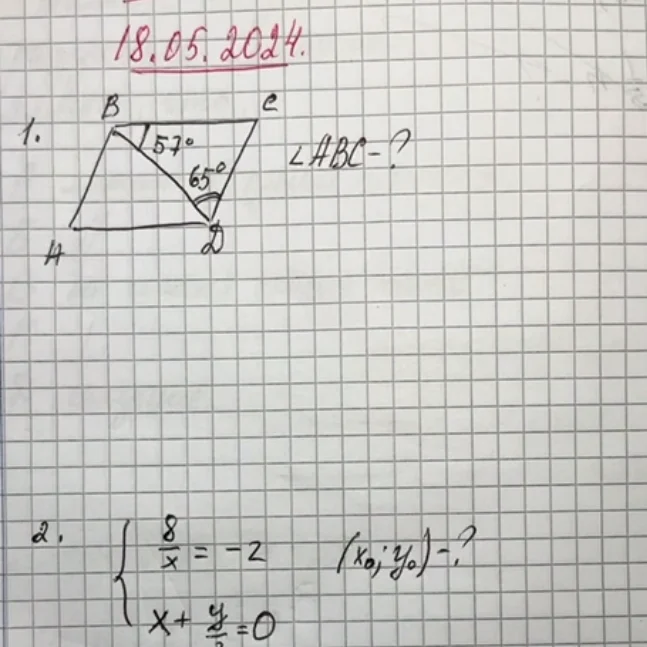 18.05.2024.
1.
B C
57°
65°
A D
∠ABC-?
2.
{ 8/x = -2 (x₀; y₀) -?
x + y/ = 0